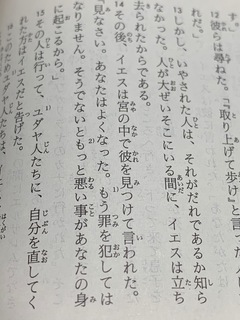 す。」
12 彼らは尋ねた。「『取り上げて歩け』と言った人
れだ。」
13 しかし、いやされた人は、それがだれであるか知ら
なかった。人が大ぜいそこにいる間に、イエスは立ち
去られたからである。
14 その後、イエスは宮の中で彼を見つけて言われた。
「見なさい。あなたはよくなった。もう罪を犯しては
なりません。そうでないともっと悪い事があなたの身
に起こるから。」
15 その人は行って、ユダヤ人たちに、自分を直してく
れた方はイエスだと告げた。
16 このためユダヤ人たちは、イエ